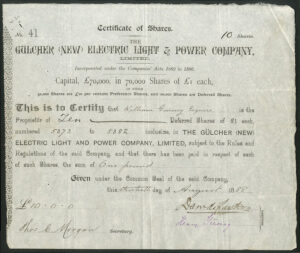 Certificate of Shares.
No. 41
10 Shares.
THE
GÜLCHER (NEW) ELECTRIC LIGHT & POWER COMPANY,
LIMITED.
Incorporated under the Companies' Acts 1862 to 1886.
Capital, £70,000, in 70,000 Shares of £1 each,
OF WHICH
Shares are £1 per centum Preference Shares, and Shares are Deferred Shares.
This is to Certify that William Esquire is the
Proprietor of Ten Deferred Shares of £1 each,
numbered 5373 to 5382 inclusive, in THE GÜLCHER (NEW)
ELECTRIC LIGHT AND POWER COMPANY, LIMITED, subject to the Rules and
Regulations of the said Company, and that there has been paid in respect of each
of such Shares the sum of One pound
Given under the Common Seal of the said Company,
this day of August 1888.
£10.0.0
Thos. C. Morgan Secretary.